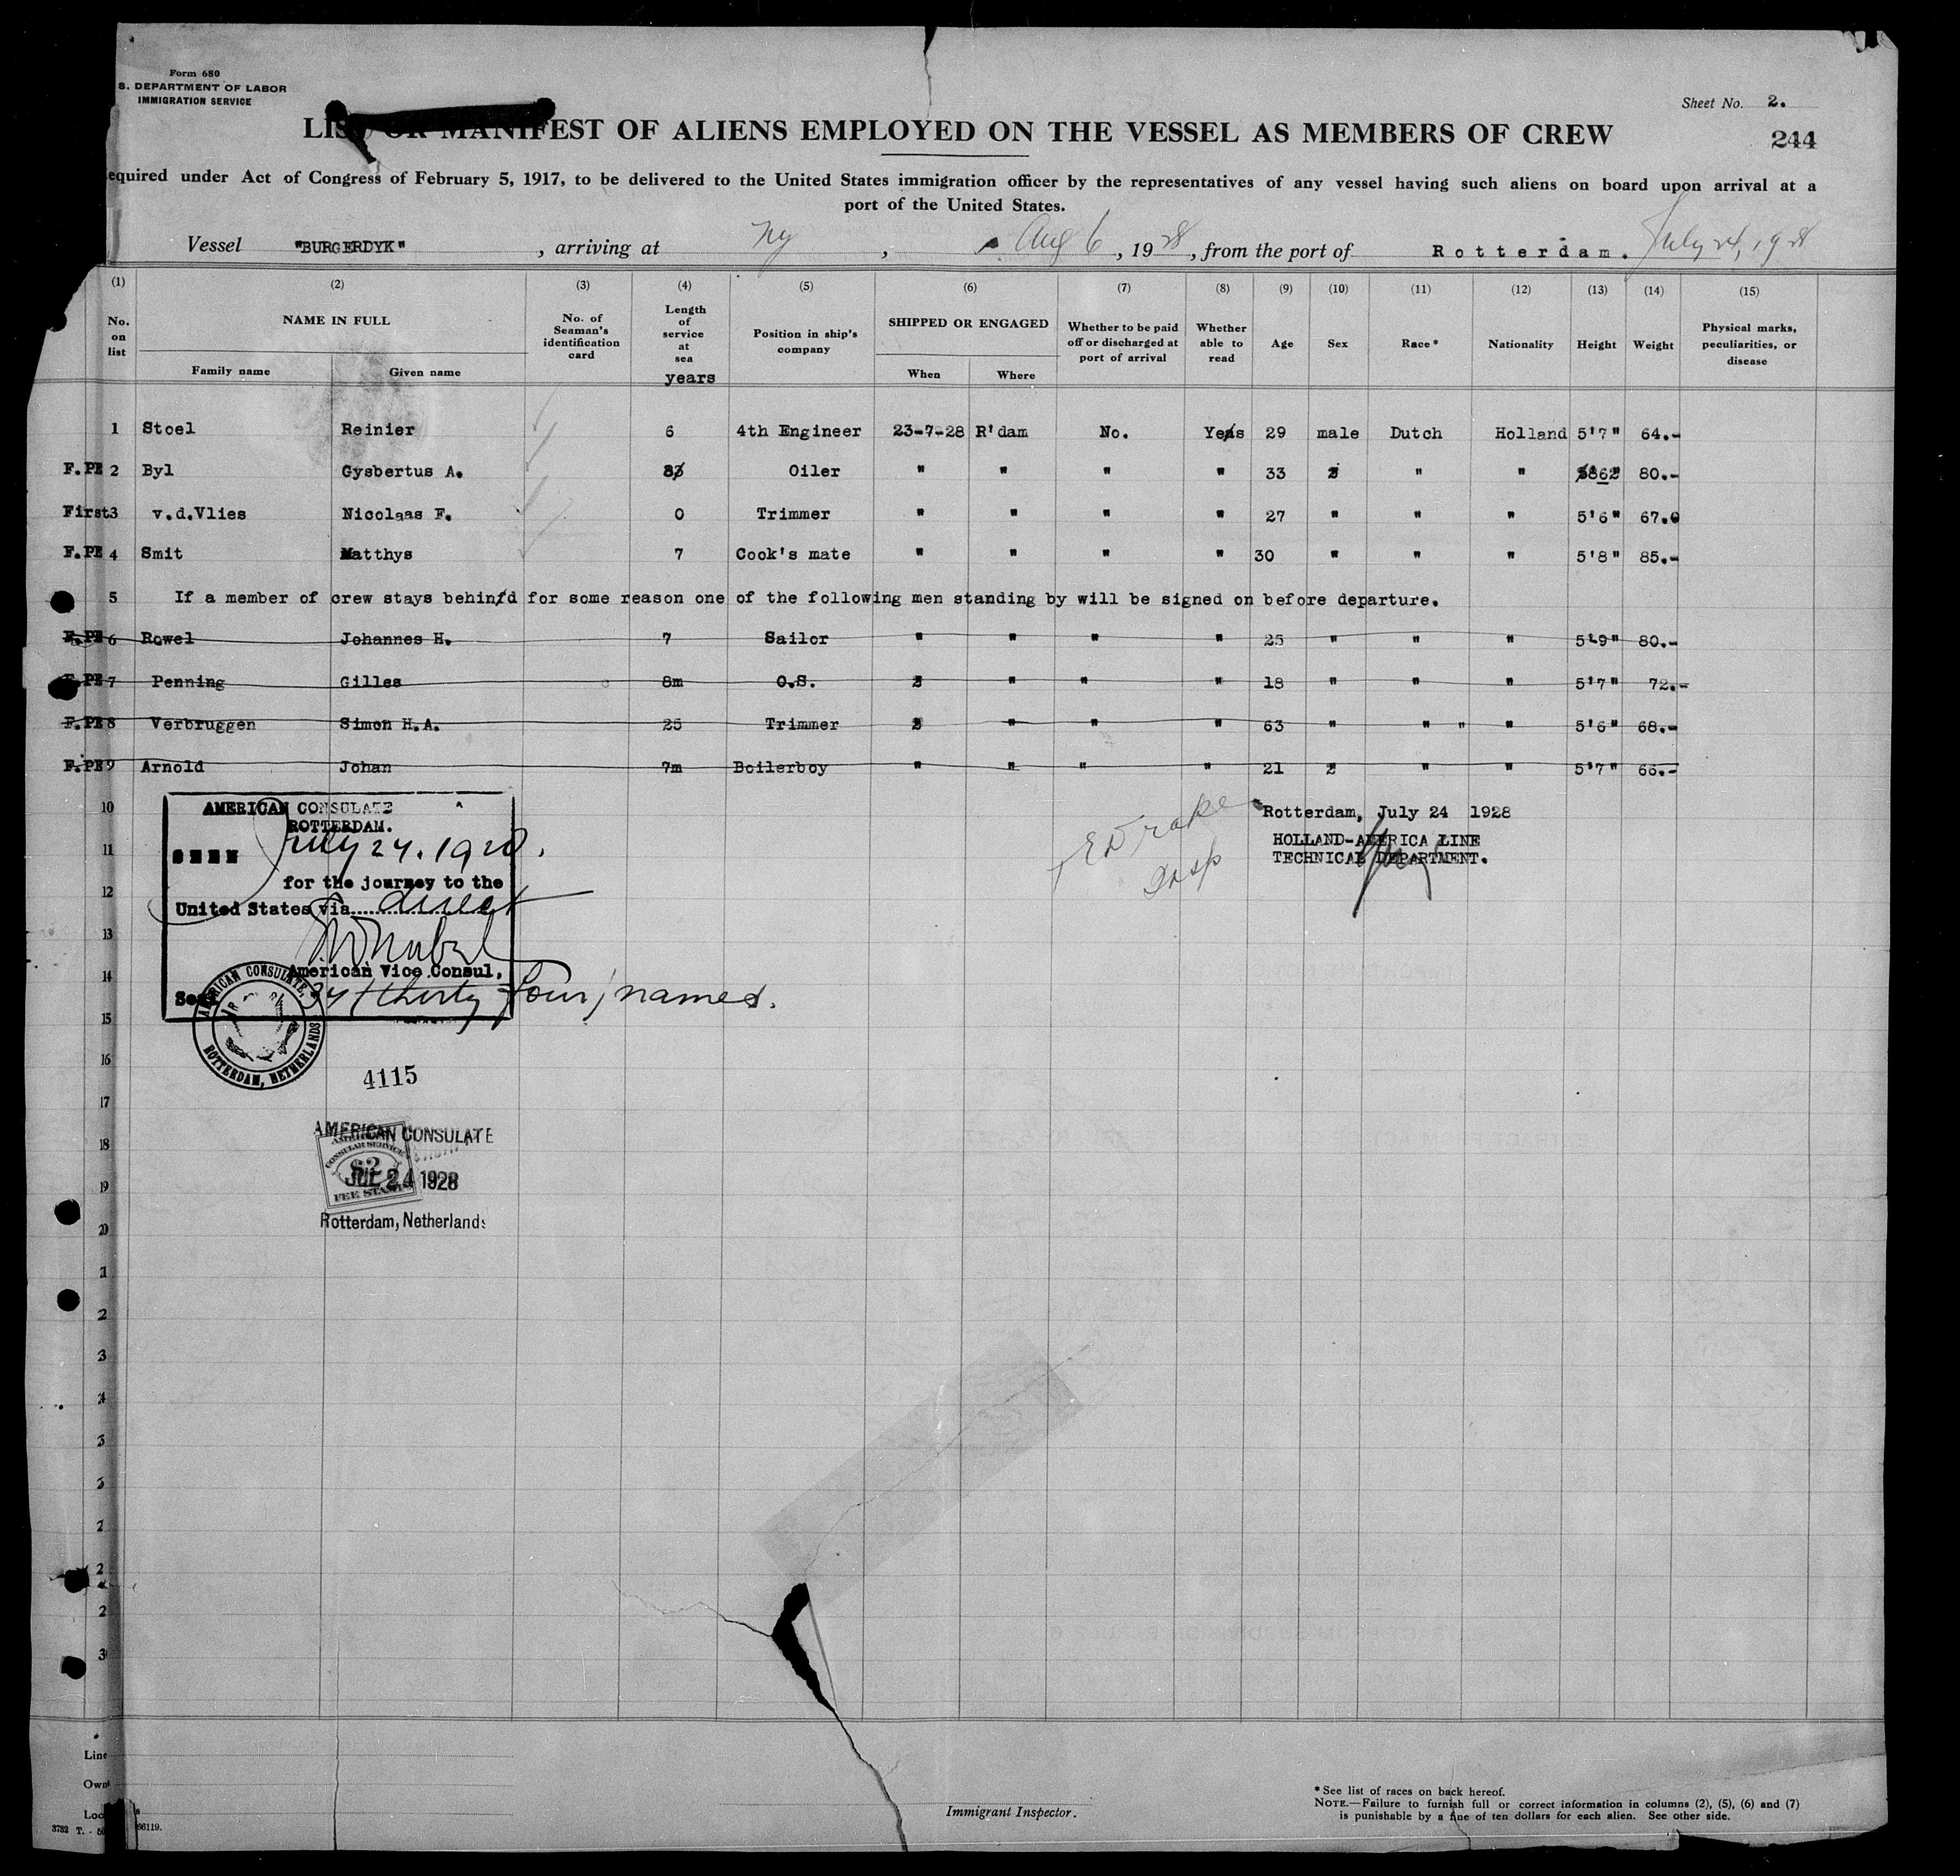 Form 680
S. DEPARTMENT OF LABOR
IMMIGRATION SERVICE
Sheet No. 2.
LIST OR MANIFEST OF ALIENS EMPLOYED ON THE VESSEL AS MEMBERS OF CREW
244
equired under Act of Congress of February 5, 1917, to be delivered to the United States immigration officer by the representatives of any vessel having such aliens on board upon arrival at a
port of the United States.
Vessel "BURGERDYK", arriving at Ny, Aug 6, 1928, from the port of Rotterdam. July 24, 1928
(1) (2) (3) (4) (5) (6) (7) (8) (9) (10) (11) (12) (13) (14) (15)
No. on list NAME IN FULL Family name Given name No. of Seaman's identification card Length of service at sea years Position in ship's company SHIPPED OR ENGAGED When Where Whether to be paid off or discharged at port of arrival Whether able to read Age Sex Race* Nationality Height Weight Physical marks, peculiarities, or disease
1 Stoel Reinier 6 4th Engineer 23-7-28 R'dam No. Yes 29 male Dutch Holland 5'7" 64.-
F.PE 2 Byl Gysbertus A. Oiler " " " " 33 " " 80.-
First 3 v.d.Vlies Nicolaas F. 0 Trimmer " " " " 27 " " " 5'6" 67.
F.PE 4 Smit Matthys 7 Cook's mate " " " " 30 " " " 5'8" 85.-
5 If a member of crew stays behind for some reason one of the following men standing by will be signed on before departure.
F.PE 6 Rowel Johannes H. 7 Sailor " " " " 25 " " " 5'9" 80.-
F.PE 7 Penning Gilles 8m O.S. " " " " 18 " " " 5'7" 72.-
F.PE 8 Verbruggen Simon H.A. 25 Trimmer " " " " 63 " " " " 5'6" 68.-
F.PE 9 Arnold Johan 7m Boilerboy " " " " 21 " " " 5'7" 66.-
10
11
12
13
14
15
16
17
18
19
20
AMERICAN CONSULATE
ROTTERDAM.
SEEN July 24. 1928.
for the journey to the
United States via direct
American Vice Consul,
Seal 34 (thirty four) names.
AMERICAN CONSULATE,
ROTTERDAM, NETHERLANDS
4115
AMERICAN CONSULATE
AMERICAN
CONSULAR SERVICE
$2
FEE STAMP
JUL 24 1928
Rotterdam, Netherlands
E Drake
Insp
Rotterdam, July 24 1928
HOLLAND-AMERICA LINE
TECHNICAL DEPARTMENT.
1
2
3
4
3
3
2
2
2
30
Line
Own
Loc
Immigrant Inspector.
*See list of races on back hereof.
NOTE.—Failure to furnish full or correct information in columns (2), (5), (6) and (7)
is punishable by a fine of ten dollars for each alien. See other side.
66119.